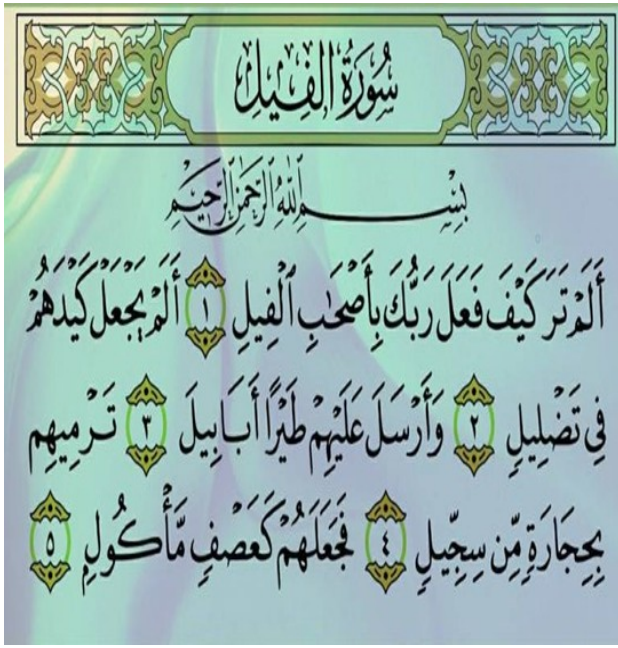 سُورَةُ الفِيلِ
بِسْمِ اللَّهِ الرَّحْمَٰنِ الرَّحِيمِ
أَلَمْ تَرَ كَيْفَ فَعَلَ رَبُّكَ بِأَصْحَٰبِ ٱلْفِيلِ ١ أَلَمْ يَجْعَلْ كَيْدَهُمْ
فِى تَضْلِيلٍ ٢ وَأَرْسَلَ عَلَيْهِمْ طَيْرًا أَبَابِيلَ ٣ تَرْمِيهِم
بِحِجَارَةٍ مِّن سِجِّيلٍ ٤ فَجَعَلَهُمْ كَعَصْفٍ مَّأْكُولٍ ٥